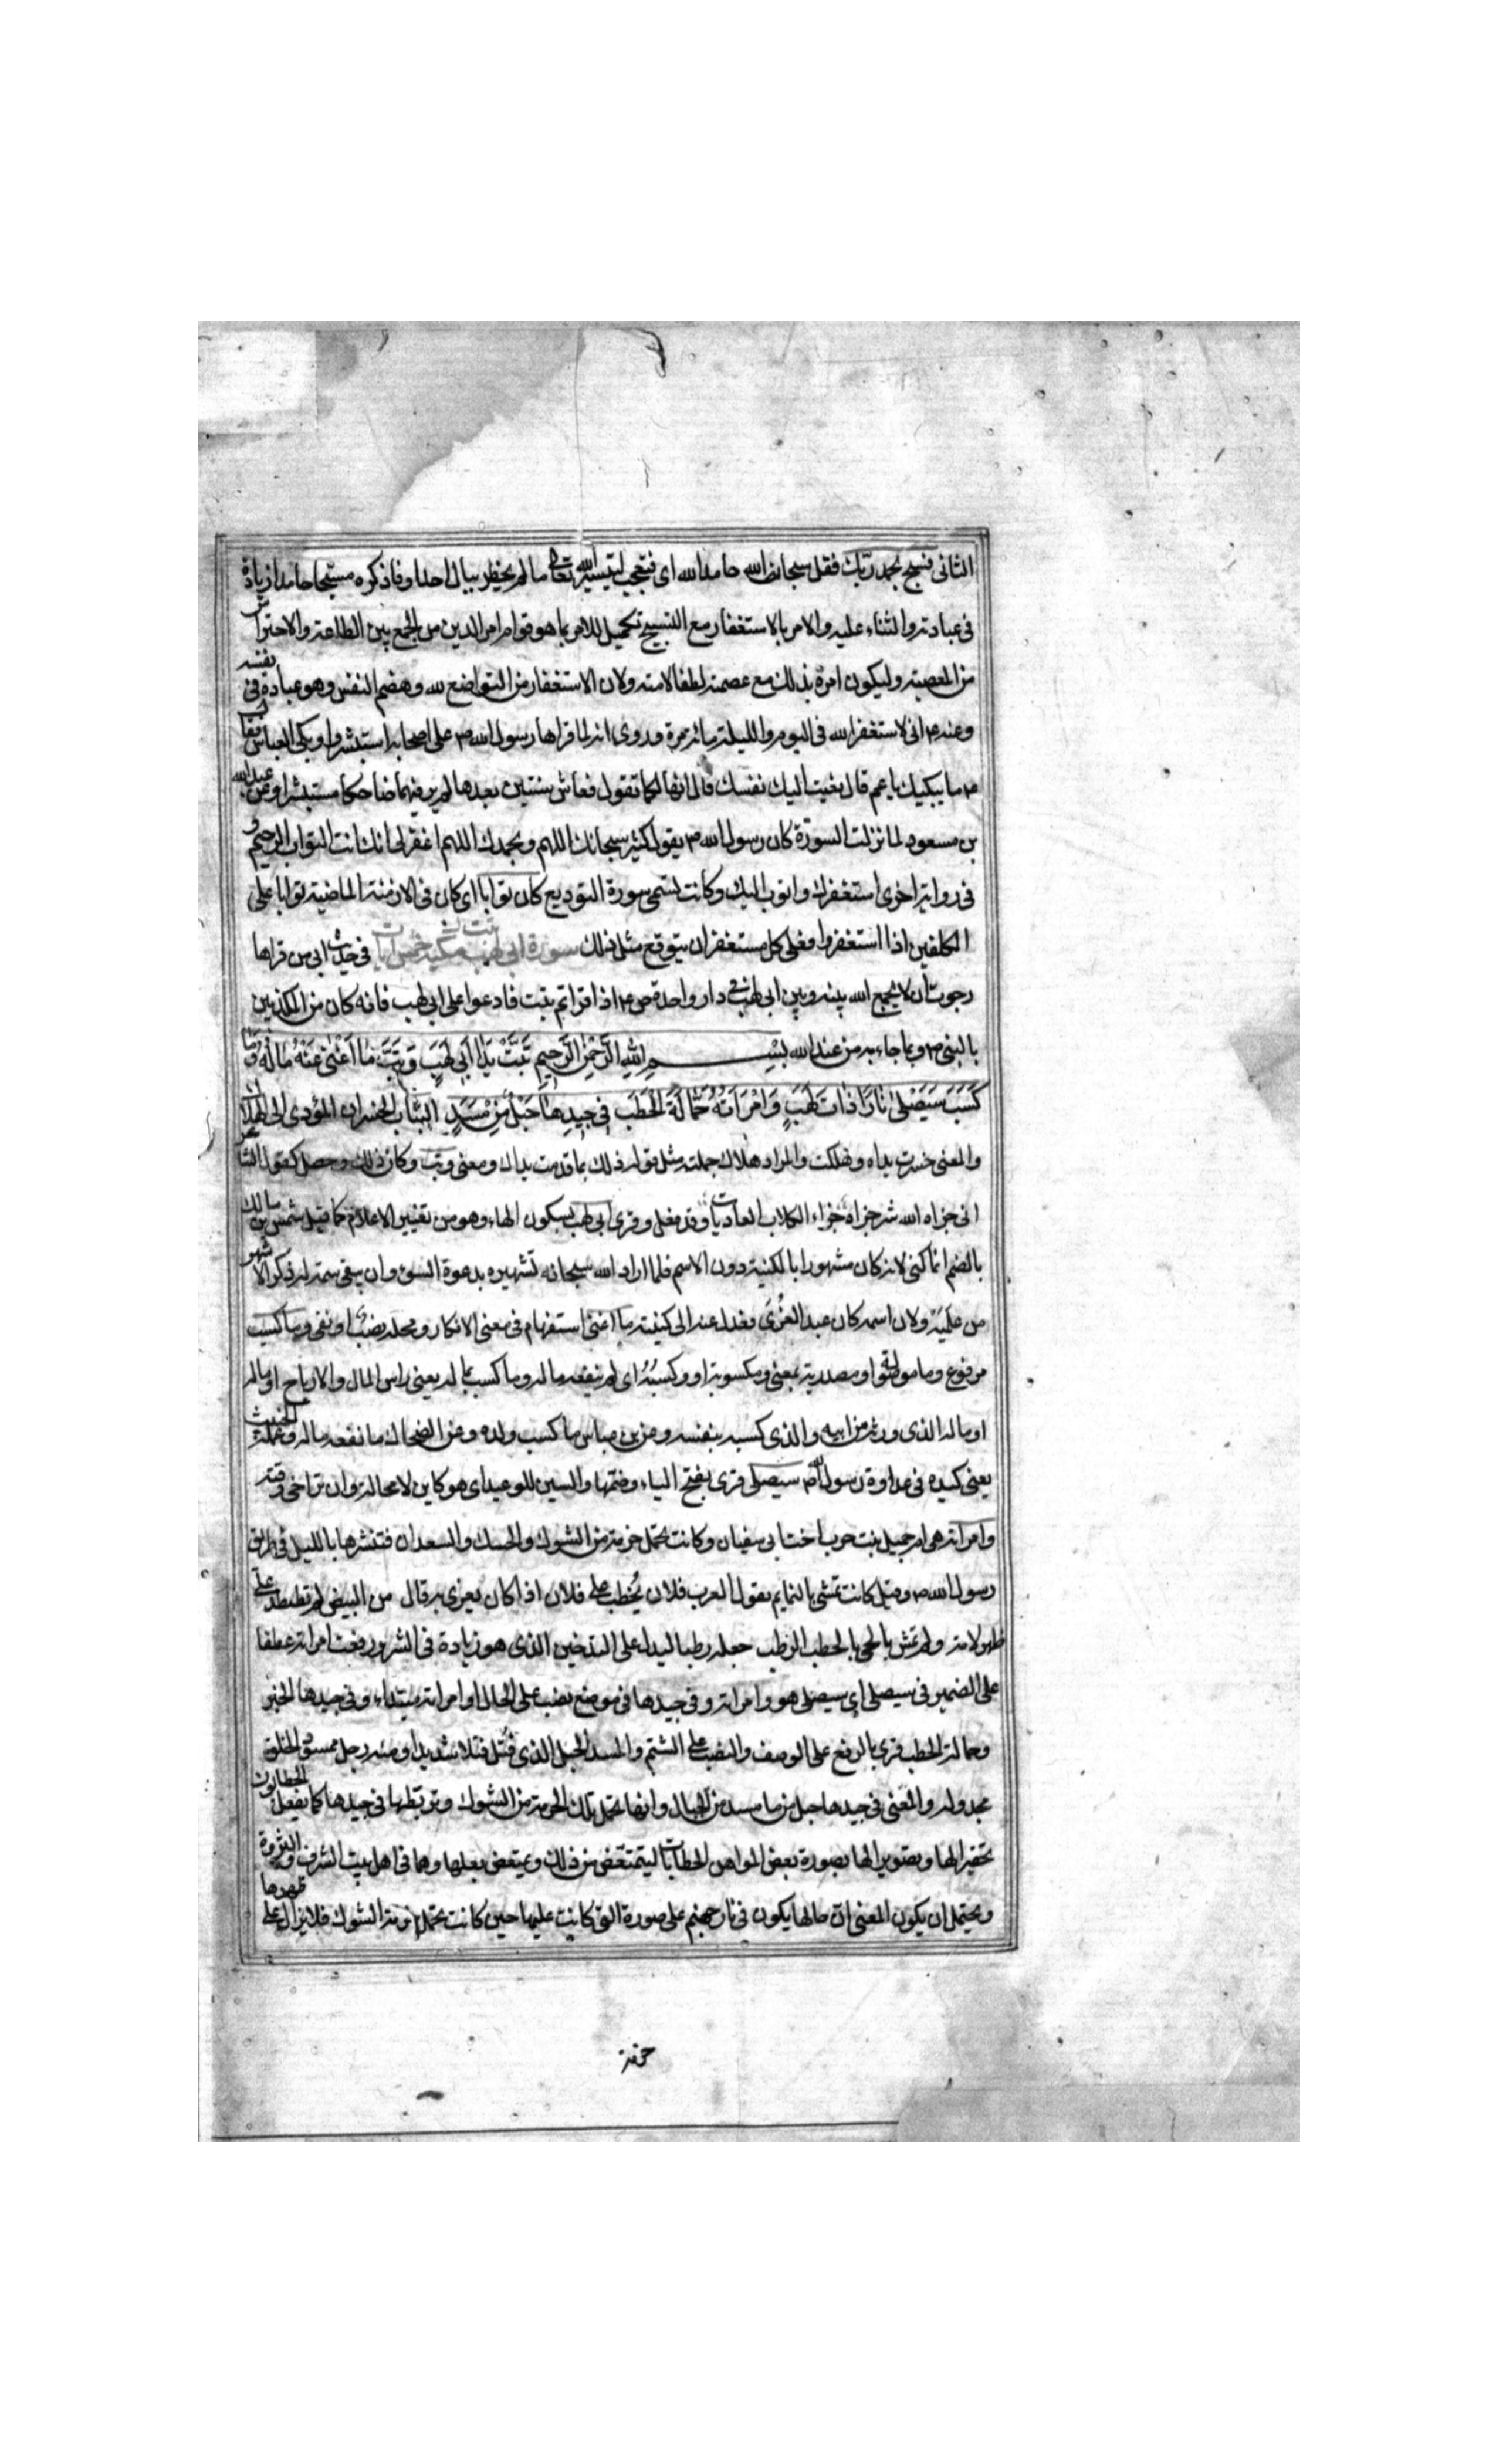 الثانی فسبح بحمد ربك فقل سبحان الله حامدا لله ای فتعجب لتیسیر الله تعالی ما لم یخطر ببال احد او فاذکره مسبحا حامدا زیادة
فی عبادته والثناء علیه والامر بالاستغفار مع التسبیح تکمیل للامر بما هو قوام امر الدین من الجمع بین الطاعة والاحتراس
من المعصیة ولیکون امره بذلك مع عصمته لطفا لامته ولان الاستغفار من التواضع لله وهضم النفس وهو عبادة فی نفسه
وعنه ع انی لاستغفر الله فی الیوم واللیلة مائة مرة وروی انه لما قراها رسول الله ص علی اصحابه استبشروا وبکی العباس فقال
ص ما یبکیك یا عم قال نعیت الیك نفسك قال انها لکما تقول فعاش سنتین بعدها لم یر فیهما ضاحکا مستبشرا وعن عبد الله
بن مسعود لما نزلت السورة کان رسول الله ص یقول کثیرا سبحانك اللهم وبحمدك اللهم اغفر لی انك انت التواب الرحیم و
فی روایة اخری استغفرك واتوب الیك وکانت تسمی سورة التودیع کان توابا ای کان فی الازمنة الماضیة توابا علی
المکلفین اذا استغفروا فعلی کل مستغفر ان یتوقع مثل ذلك سورة ابی لهب مکیة خمس آیات فی حدیث ابی من قراها
رجوت ان لا یجمع الله بینه وبین ابی لهب فی دار واحدة ص ع اذا قراتم تبت فادعوا علی ابی لهب فانه کان من المکذبین
بالنبی ص وبما جاء به من عند الله بسم الله الرحمن الرحیم تَبَّتْ یَدَا اَبِی لَهَبٍ وَتَبَّ مَا اَغْنٰی عَنْهُ مَالُهُ وَمَا
کَسَبَ سَیَصْلٰی نَارًا ذَاتَ لَهَبٍ وَامْرَاَتُهُ حَمَّالَةَ الْحَطَبِ فِی جِیدِهَا حَبْلٌ مِنْ مَسَدٍ التباب الخسران المؤدی الی الهلاك
والمعنی خسرت یداه وهلکت والمراد هلاك جملته مثل قوله ذلك بما قدمت یداك ومعنی وتب وکان ذلك وحصل کقول الشاعر
انی جزاه الله شر جزاه جزاء الکلاب العادیات وقد فعل وقری ابی لهب بسکون الهاء وهو من تغییر الاعلام کما قیل شمس بن مالك
بالضم انما کنی لانه کان مشهورا بالکنیة دون الاسم فلما اراد الله سبحانه تشهیره بدعوة السوء وان یبقی سمة له ذکر الاشهر
من علمیه ولان اسمه کان عبد العزی فعدل عنه الی کنیته ما اغنی استفهام فی معنی الانکار ومحله نصب او نفی وما کسب
مرفوع وما موصولة او مصدریة بمعنی ومکسوبه او وکسبه ای لم ینفعه ماله وما کسب بماله یعنی راس المال والارباح او ماله
او ماله الذی ورثه من ابیه والذی کسبه بنفسه وعن بن عباس ما کسب ولده وعن الضحاك ما نفعه ماله وعمله الخبیث
یعنی کیده فی عداوة رسول الله ص سیصلی قری بفتح الیاء وضمها والسین للوعید ای هو کاین لا محالة وان تراخی وقته
وامراته هی ام جمیل بنت حرب اخت ابی سفیان وکانت تحمل حزمة من الشوك والحسك والسعدان فتنثرها باللیل فی طریق
رسول الله ص وقیل کانت تمشی بالنمایم یقول العرب فلان یُحطب علی فلان اذا کان یغری به قال من البیض لم تصطد علی
ظهر لامة ولم تمش بالحی بالحطب الرطب جعله رطبا لیدل علی التدخین الذی هو زیادة فی الشر ورفعت امراته عطفا
علی الضمیر فی سیصلی ای سیصلی هو وامراته وفی جیدها فی موضع نصب علی الحال او امراته مبتداء وفی جیدها الخبر
وحمالة الحطب قری بالرفع علی الوصف والنصب علی الشتم والمسد الحبل الذی فُتل فتلا شدیدا ومنه رجل ممسود الخلق
مجدوله والمعنی فی جیدها حبل من ما مسد من الحبال وانها تحمل تلك الحزمة من الشوك وتربطها فی جیدها کما یفعل الحطابون
تحقیرا لها وتصویرا لها بصورة بعض المواهن الحطابات لیتمتعض من ذلك ویمتعض بعلها وهما فی اهل بیت الشرف والثروة
ویحتمل ان یکون المعنی ان حالها یکون فی نار جهنم علی صورة التی کانت علیها حین کانت تحمل حزمة الشوك فلا یزال علی ظهرها
حزمة